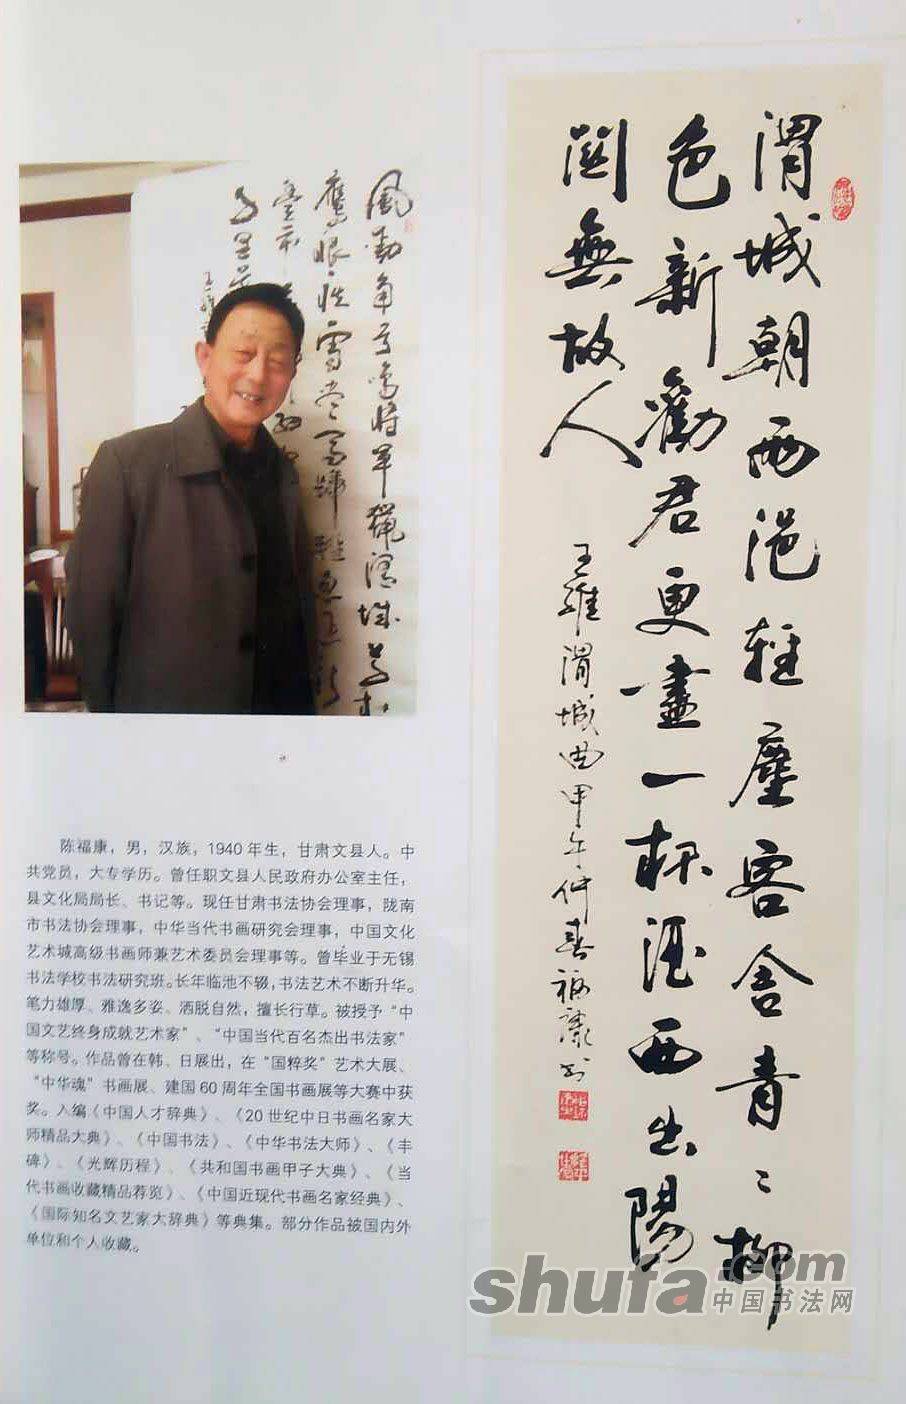 風勁角弓鳴將軍獵渭城草枯
鷹眼疾雪盡馬蹄輕忽過新
豐市
渭城朝雨浥輕塵客舍青々柳
色新勸君更盡一杯酒西出陽
關無故人
王維渭城曲甲午仲春福康书
陈福康，男，汉族，1940年生，甘肃文县人。中
共党员，大专学历。曾任职文县人民政府办公室主任，
县文化局局长、书记等。现任甘肃书法协会理事，陇南
市书法协会理事，中华当代书画研究会理事，中国文化
艺术城高级书画师兼艺术委员会理事等。曾毕业于无锡
书法学校书法研究班。长年临池不辍，书法艺术不断升华。
笔力雄厚、雅逸多姿、洒脱自然，擅长行草。被授予“中
国文艺终身成就艺术家”、“中国当代百名杰出书法家”
等称号。作品曾在韩、日展出，在“国粹奖”艺术大展、
“中华魂”书画展、建国60周年全国书画展等大赛中获
奖。入编《中国人才辞典》、《20世纪中日书画名家大
师精品大典》、《中国书法》、《中华书法大师》、《丰
碑》、《光辉历程》、《共和国书画甲子大典》、《当
代书画收藏精品荐览》、《中国近现代书画名家经典》、
《国际知名文艺家大辞典》等典集。部分作品被国内外
单位和个人收藏。
shufa.com
中国书法网